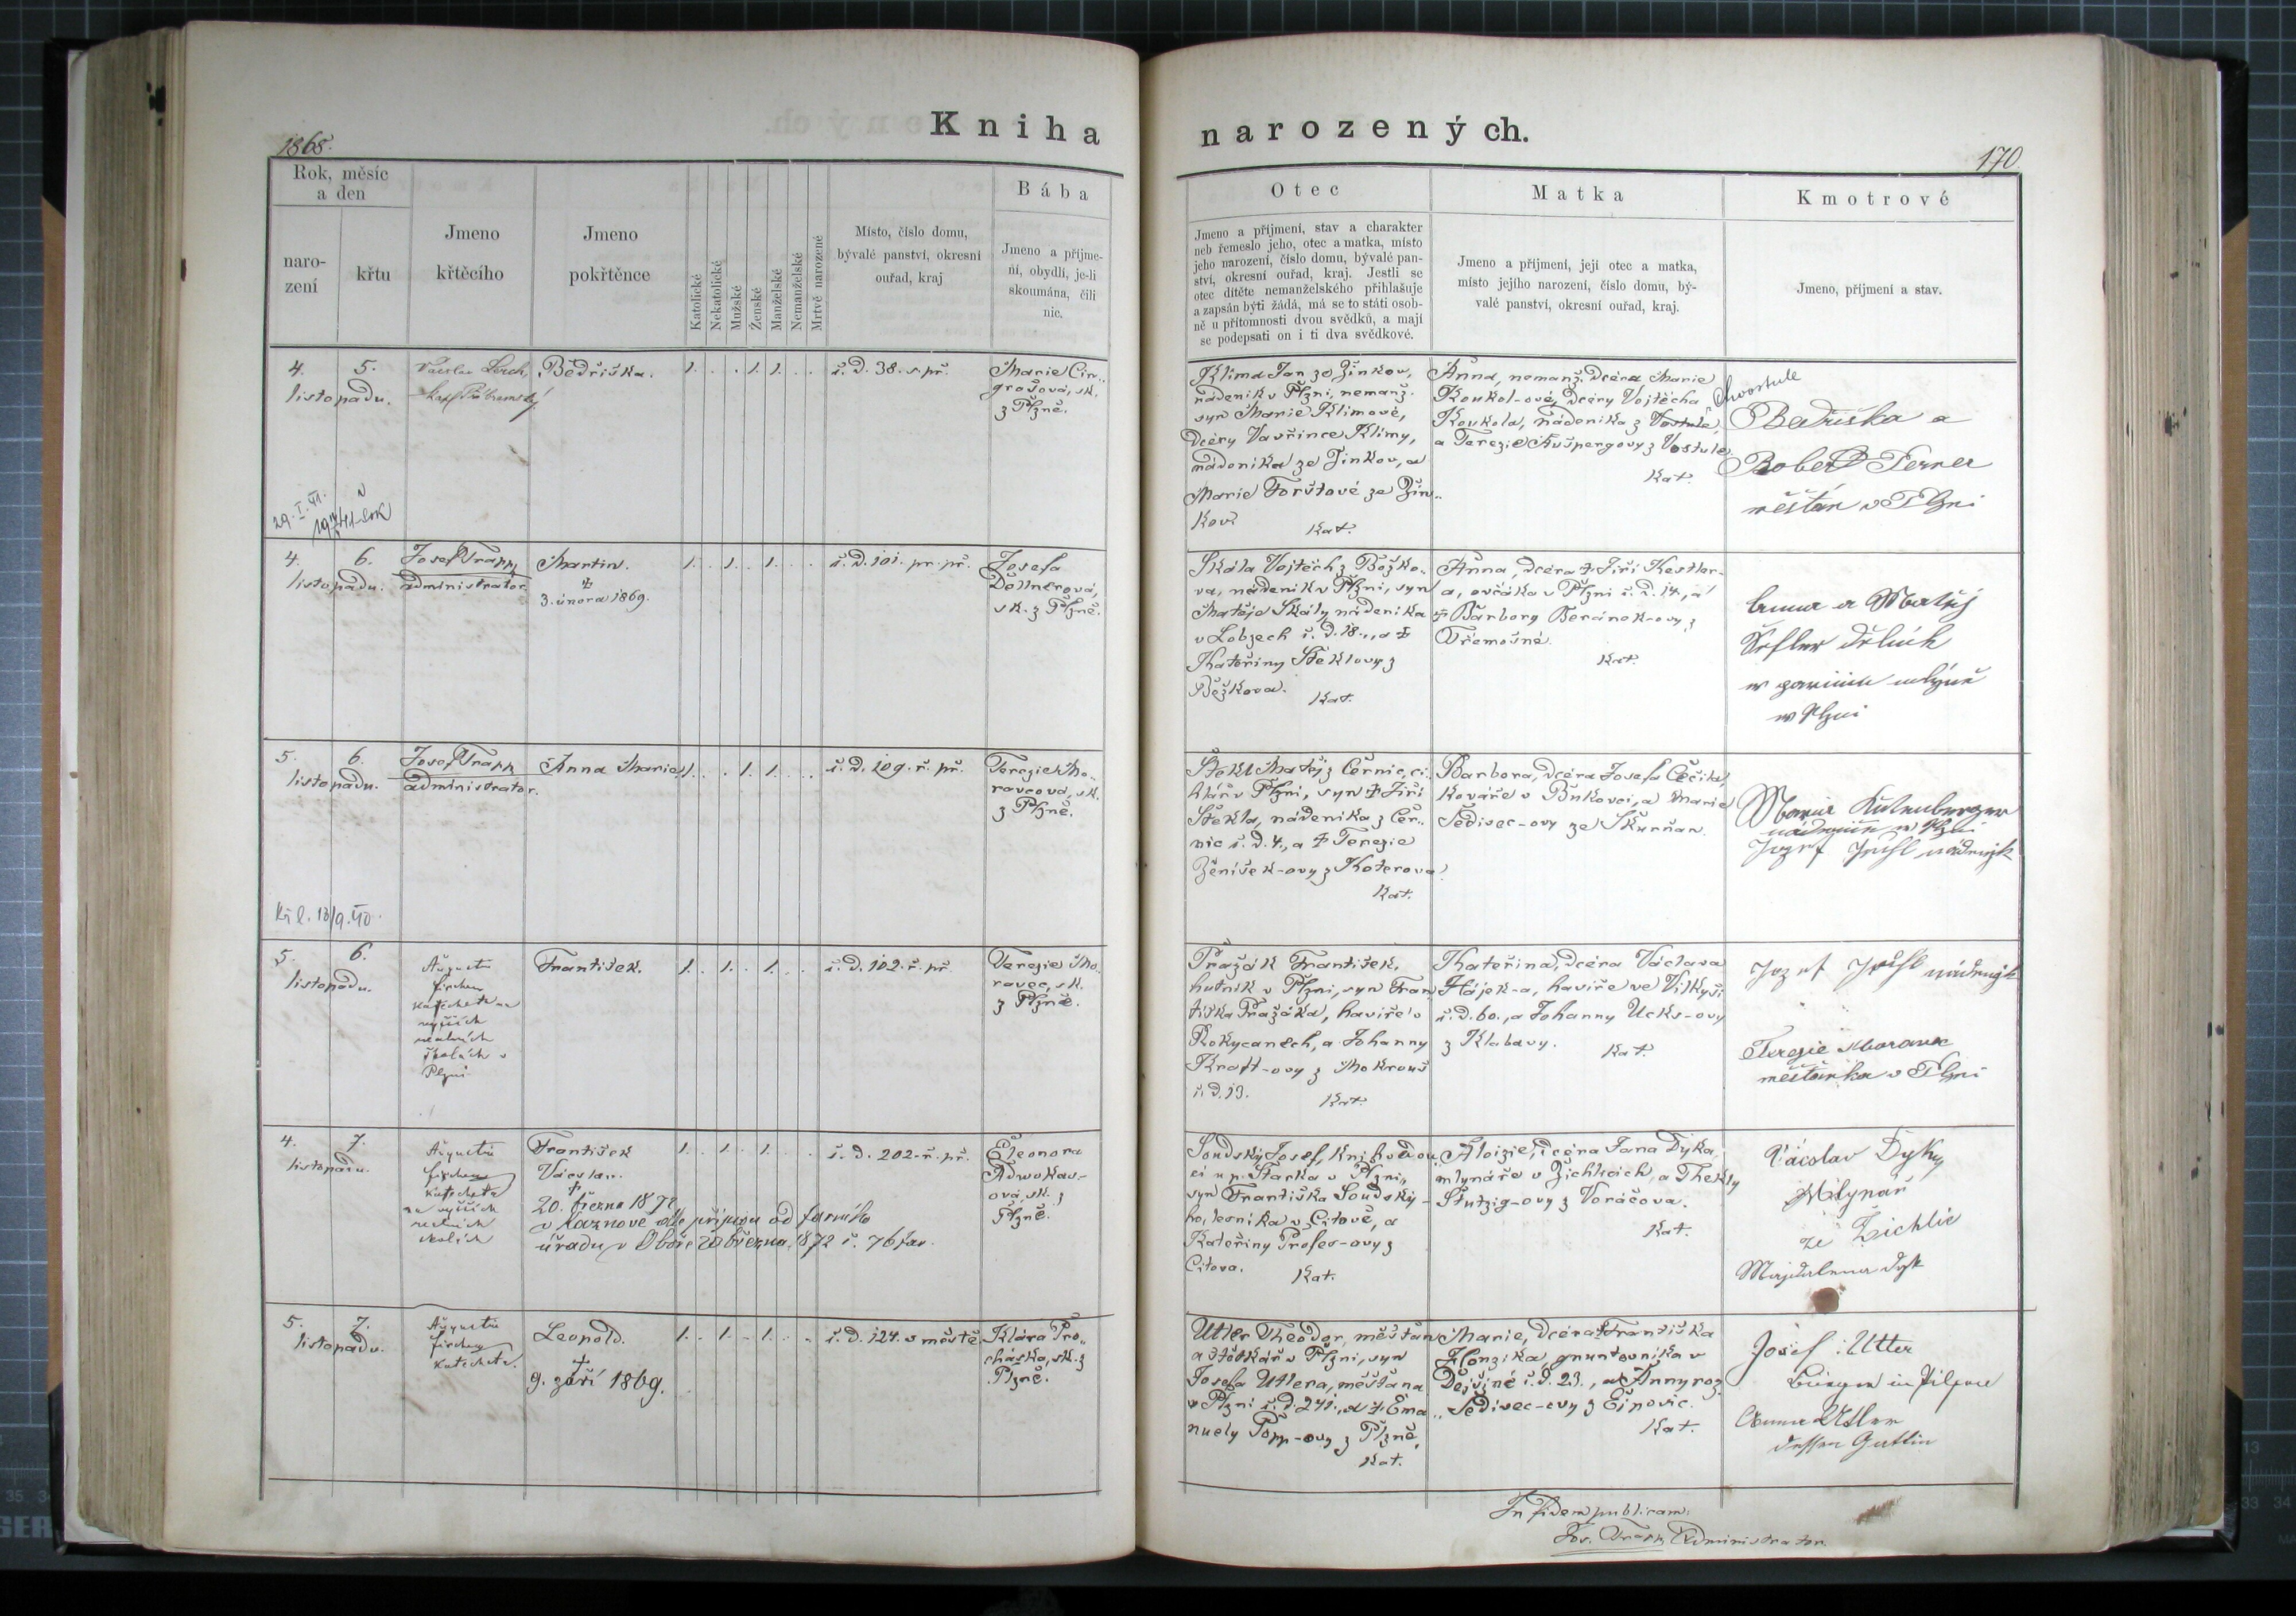 Kniha
narozených.
1868.
170
Rok, měsíc
a den
naro-
zení
křtu
Jmeno
křtěcího
Jmeno
pokřtěnce
Katolické
Nekatolické
Mužské
Ženské
Manželské
Nemanželské
Mrtvě narozené
Místo, číslo domu,
bývalé panství, okresní
ouřad, kraj
Bába
Jmeno a příjme-
ní, obydlí, je-li
skoumána, čili
nic.
Otec
Jmeno a příjmení, stav a charakter
neb řemeslo jeho, otec a matka, místo
jeho narození, číslo domu, bývalé pan-
ství, okresní ouřad, kraj. Jestli se
otec dítěte nemanželského přihlašuje
a zapsán býti žádá, má se to státi osob-
ně u přítomnosti dvou svědků, a mají
se podepsati on i ti dva svědkové.
Matka
Jmeno a příjmení, její otec a matka,
místo jejího narození, číslo domu, bý-
valé panství, okresní ouřad, kraj.
Kmotrové
Jmeno, příjmení a stav.
4. 5.
listopadu.
Václav Lerch,
Bedřiška.
1. . . 1. 1. . .
č. d. 38. s. př.
Marie Cin-
grošová, sk.
z Plzně.
Klima Jan ze Žinkov,
nádeník v Plzni, nemanž.
syn Marie Klimové,
dcéry Vavřince Klimy,
nádeníka ze Žinkov, a
Marie Forštové ze Žin-
kov.
Kat.
Anna, nemanž. dcéra Marie
Koukol-ové, dcéry Vojtěcha
Koukola, nádeníka z Vostule,
a Terezie Aušpergovy z Vostule.
Chvostule
Kat.
Bedřiška a
Robert Ferner
měšťan v Plzni
4. 6.
listopadu.
Josef Trapp
administrator.
Martin.
‡
3. února 1869.
1. . 1. . 1. . .
č. d. 101. pr. př.
Josefa
Döllnerová,
sk. z Plzně.
Skála Vojtěch z Božko-
va, nádeník v Plzni, syn
Matěje Skály, nádeníka
v Lobzech č. d. 18., a ‡
Kateřiny Štěklovy z
Božkova.
Kat.
Anna, dcéra ‡ Jiří Kestler-
a, ovčáka v Plzni č. d. 14., a
‡ Barbory Beránek-ovy z
Třemošné.
Kat.
Anna a Matěj
w Plzni
5. 6.
listopadu.
Josef Trapp
administrátor.
Anna Marie
1. . . 1. 1. . .
č. d. 109. ř. př.
Terezie Mo-
ravcová, sk.
z Plzně.
Štekl Matěj z Černic, ci-
hlář v Plzni, syn ‡ Jiří
Štekla, nádeníka z Čer-
nic č. d. 4., a ‡ Terezie
Ženíšek-ovy z Koterova.
Kat.
Barbora, dcéra Josefa Čečila,
kováře v Bukovci, a Marie
Šedivec-ovy ze Skurňan.
Jozef
5. 6.
listopadu.
Augustin
katecheta na
vyšších
realních
školách v
Plzni
František.
1. . 1. . 1. . .
č. d. 102. ř. př.
Terezie Mo-
ravec, sk.
z Plzně.
Pražák František,
hutník v Plzni, syn Fran-
tiška Pražáka, havíře v
Rokycanech, a Johanny
Kraft-ovy z Mokrouš
č. d. 13.
Kat.
Kateřina, dcéra Václava
Hájek-a, havíře ve Vilkyši
č. d. 60., a Johanny Ucks-ovy
z Klabavy.
Kat.
Jozef
Terezie Moravec
měšťanka v Plzni
4. 7.
listopadu.
Augustin
katecheta
na vyšších
realních
školách
František
Václav.
†
20. března 1872
v Kaznově dle přípisu od farního
úřadu v Oboře 20 března 1872 č. 76 far.
1. . 1. . 1. . .
č. d. 202. ř. př.
Eleonora
Adwokas-
ová, sk. z
Plzně.
Soudský Josef, knihvedou-
cí u p. Starka v Plzni,
syn Františka Soudský-
ho, lesníka v Citově, a
Kateřiny Profes-ovy z
Citova.
Kat.
Aloizie, dcéra Jana Dyka,
mlynáře v Žichlicích, a Thekly
Stutzig-ovy z Voráčova.
Kat.
Václav Dyk,
Mlynař
ze Žichlic
Majdalena Dyk
5. 7.
listopadu.
Augustin
katecheta.
Leopold.
†
9. září 1869.
1. . 1. . 1. . .
č. d. 124. v městě
Klára Pro-
cházka, sk. z
Plzně.
Utler Theodor, měšťan
a štětkář v Plzni, syn
Josefa Utlera, měšťana
v Plzni č. d. 241., a ‡ Ema-
nuely Popp-ovy z Plzně.
Kat.
Marie, dcéra ‡ Františka
Honzíka, gruntovníka v
Dejšíně č. d. 23., a Anny roz.
Šedivec-ovy z Ejpovic.
Kat.
Josef Utler
Bürger in Pilsen
Anna Utler
dessen Gattin
In fidem publicam:
Jos. Trapp, Administrator.